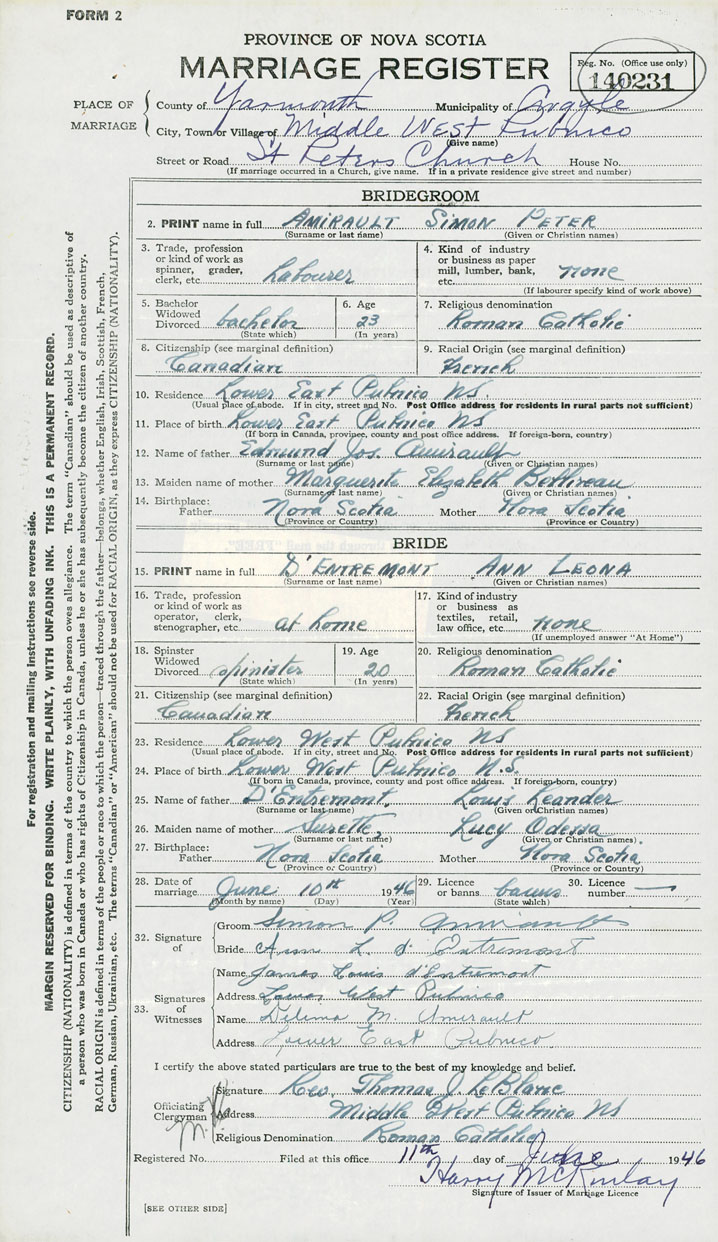 FORM 2
PROVINCE OF NOVA SCOTIA
MARRIAGE REGISTER
Reg. No. (Office use only)
140231
PLACE OF MARRIAGE
County of Yarmouth Municipality of Argyle
City, Town or Village of Middle West Pubnico
(Give name)
Street or Road St Peters Church House No.
(If marriage occurred in a Church, give name. If in a private residence give street and number)
BRIDEGROOM
2. PRINT name in full AMIRAULT SIMON PETER
(Surname or last name) (Given or Christian names)
3. Trade, profession or kind of work as spinner, grader, clerk, etc. Labourer
4. Kind of industry or business as paper mill, lumber, bank, etc. none
(If labourer specify kind of work above)
5. Bachelor Widowed Divorced bachelor
(State which)
6. Age 23
(In years)
7. Religious denomination
Roman Catholic
8. Citizenship (see marginal definition)
Canadian
9. Racial Origin (see marginal definition)
French
10. Residence Lower East Pubnico NS.
(Usual place of abode. If in city, street and No. Post Office address for residents in rural parts not sufficient)
11. Place of birth Lower East Pubnico NS
(If born in Canada, province, county and post office address. If foreign-born, country)
12. Name of father Edmund Jos. Amirault
(Surname or last name) (Given or Christian names)
13. Maiden name of mother Marguerite Elizabeth
(Surname or last name) (Given or Christian names)
14. Birthplace:
Father Nova Scotia Mother Nova Scotia
(Province or Country) (Province or Country)
BRIDE
15. PRINT name in full D'ENTREMONT ANN LEONA
(Surname or last name) (Given or Christian names)
16. Trade, profession or kind of work as operator, clerk, stenographer, etc. at home
17. Kind of industry or business as textiles, retail, law office, etc. none
(If unemployed answer "At Home")
18. Spinster Widowed Divorced spinister
(State which)
19. Age 20
(In years)
20. Religious denomination
Roman Catholic
21. Citizenship (see marginal definition)
Canadian
22. Racial Origin (see marginal definition)
French
23. Residence Lower West Pubnico NS
(Usual place of abode. If in city, street and No. Post Office address for residents in rural parts not sufficient)
24. Place of birth Lower West Pubnico N.S.
(If born in Canada, province, county and post office address. If foreign-born, country)
25. Name of father D'Entremont, Louis Leander
(Surname or last name) (Given or Christian names)
26. Maiden name of mother Surette, Lucy Odessa
(Surname or last name) (Given or Christian names)
27. Birthplace:
Father Nova Scotia Mother Nova Scotia
(Province or Country) (Province or Country)
28. Date of marriage June 10th 1946
(Month by name) (Day) (Year)
29. Licence or banns banns
(State which)
30. Licence number —
32. Signature of
Groom Simon P. Amirault
Bride Ann L. d'Entremont
33. Signatures of Witnesses
Name James Louis d'Entremont
Address Lower West Pubnico
Name Delima M. Amirault
Address Lower East Pubnico
I certify the above stated particulars are true to the best of my knowledge and belief.
Officiating Clergyman
Signature Rev. Thomas J. LeBlanc
Address Middle West Pubnico NS
Religious Denomination Roman Catholic
Registered No. Filed at this office 11th day of June 1946
Harry McKinlay
Signature of Issuer of Marriage Licence
[SEE OTHER SIDE]
For registration and mailing instructions see reverse side.
MARGIN RESERVED FOR BINDING. WRITE PLAINLY, WITH UNFADING INK. THIS IS A PERMANENT RECORD.
CITIZENSHIP (NATIONALITY) is defined in terms of the country to which the person owes allegiance. The term "Canadian" should be used as descriptive of
a person who was born in Canada or who has rights of Citizenship in Canada, unless he or she has subsequently become the citizen of another country.
RACIAL ORIGIN is defined in terms of the people or race to which the person—traced through the father—belongs, whether English, Irish, Scottish, French,
German, Russian, Ukrainian, etc. The terms "Canadian" or "American" should not be used for RACIAL ORIGIN, as they express CITIZENSHIP (NATIONALITY).